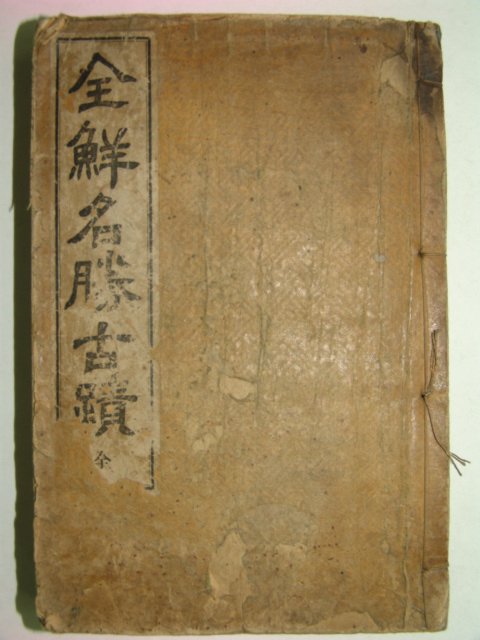 全鮮名勝古蹟 全